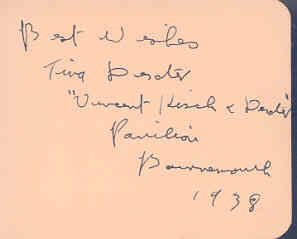 Best Wishes
Tina Dexter
"Vincent Hirsch & Dexter"
Pavilion
Bournemouth
1938